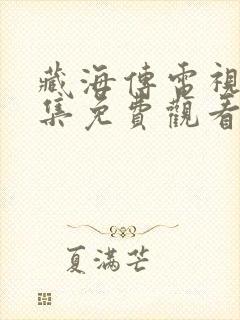 藏海傳電視
集免費觀看
夏滿芒